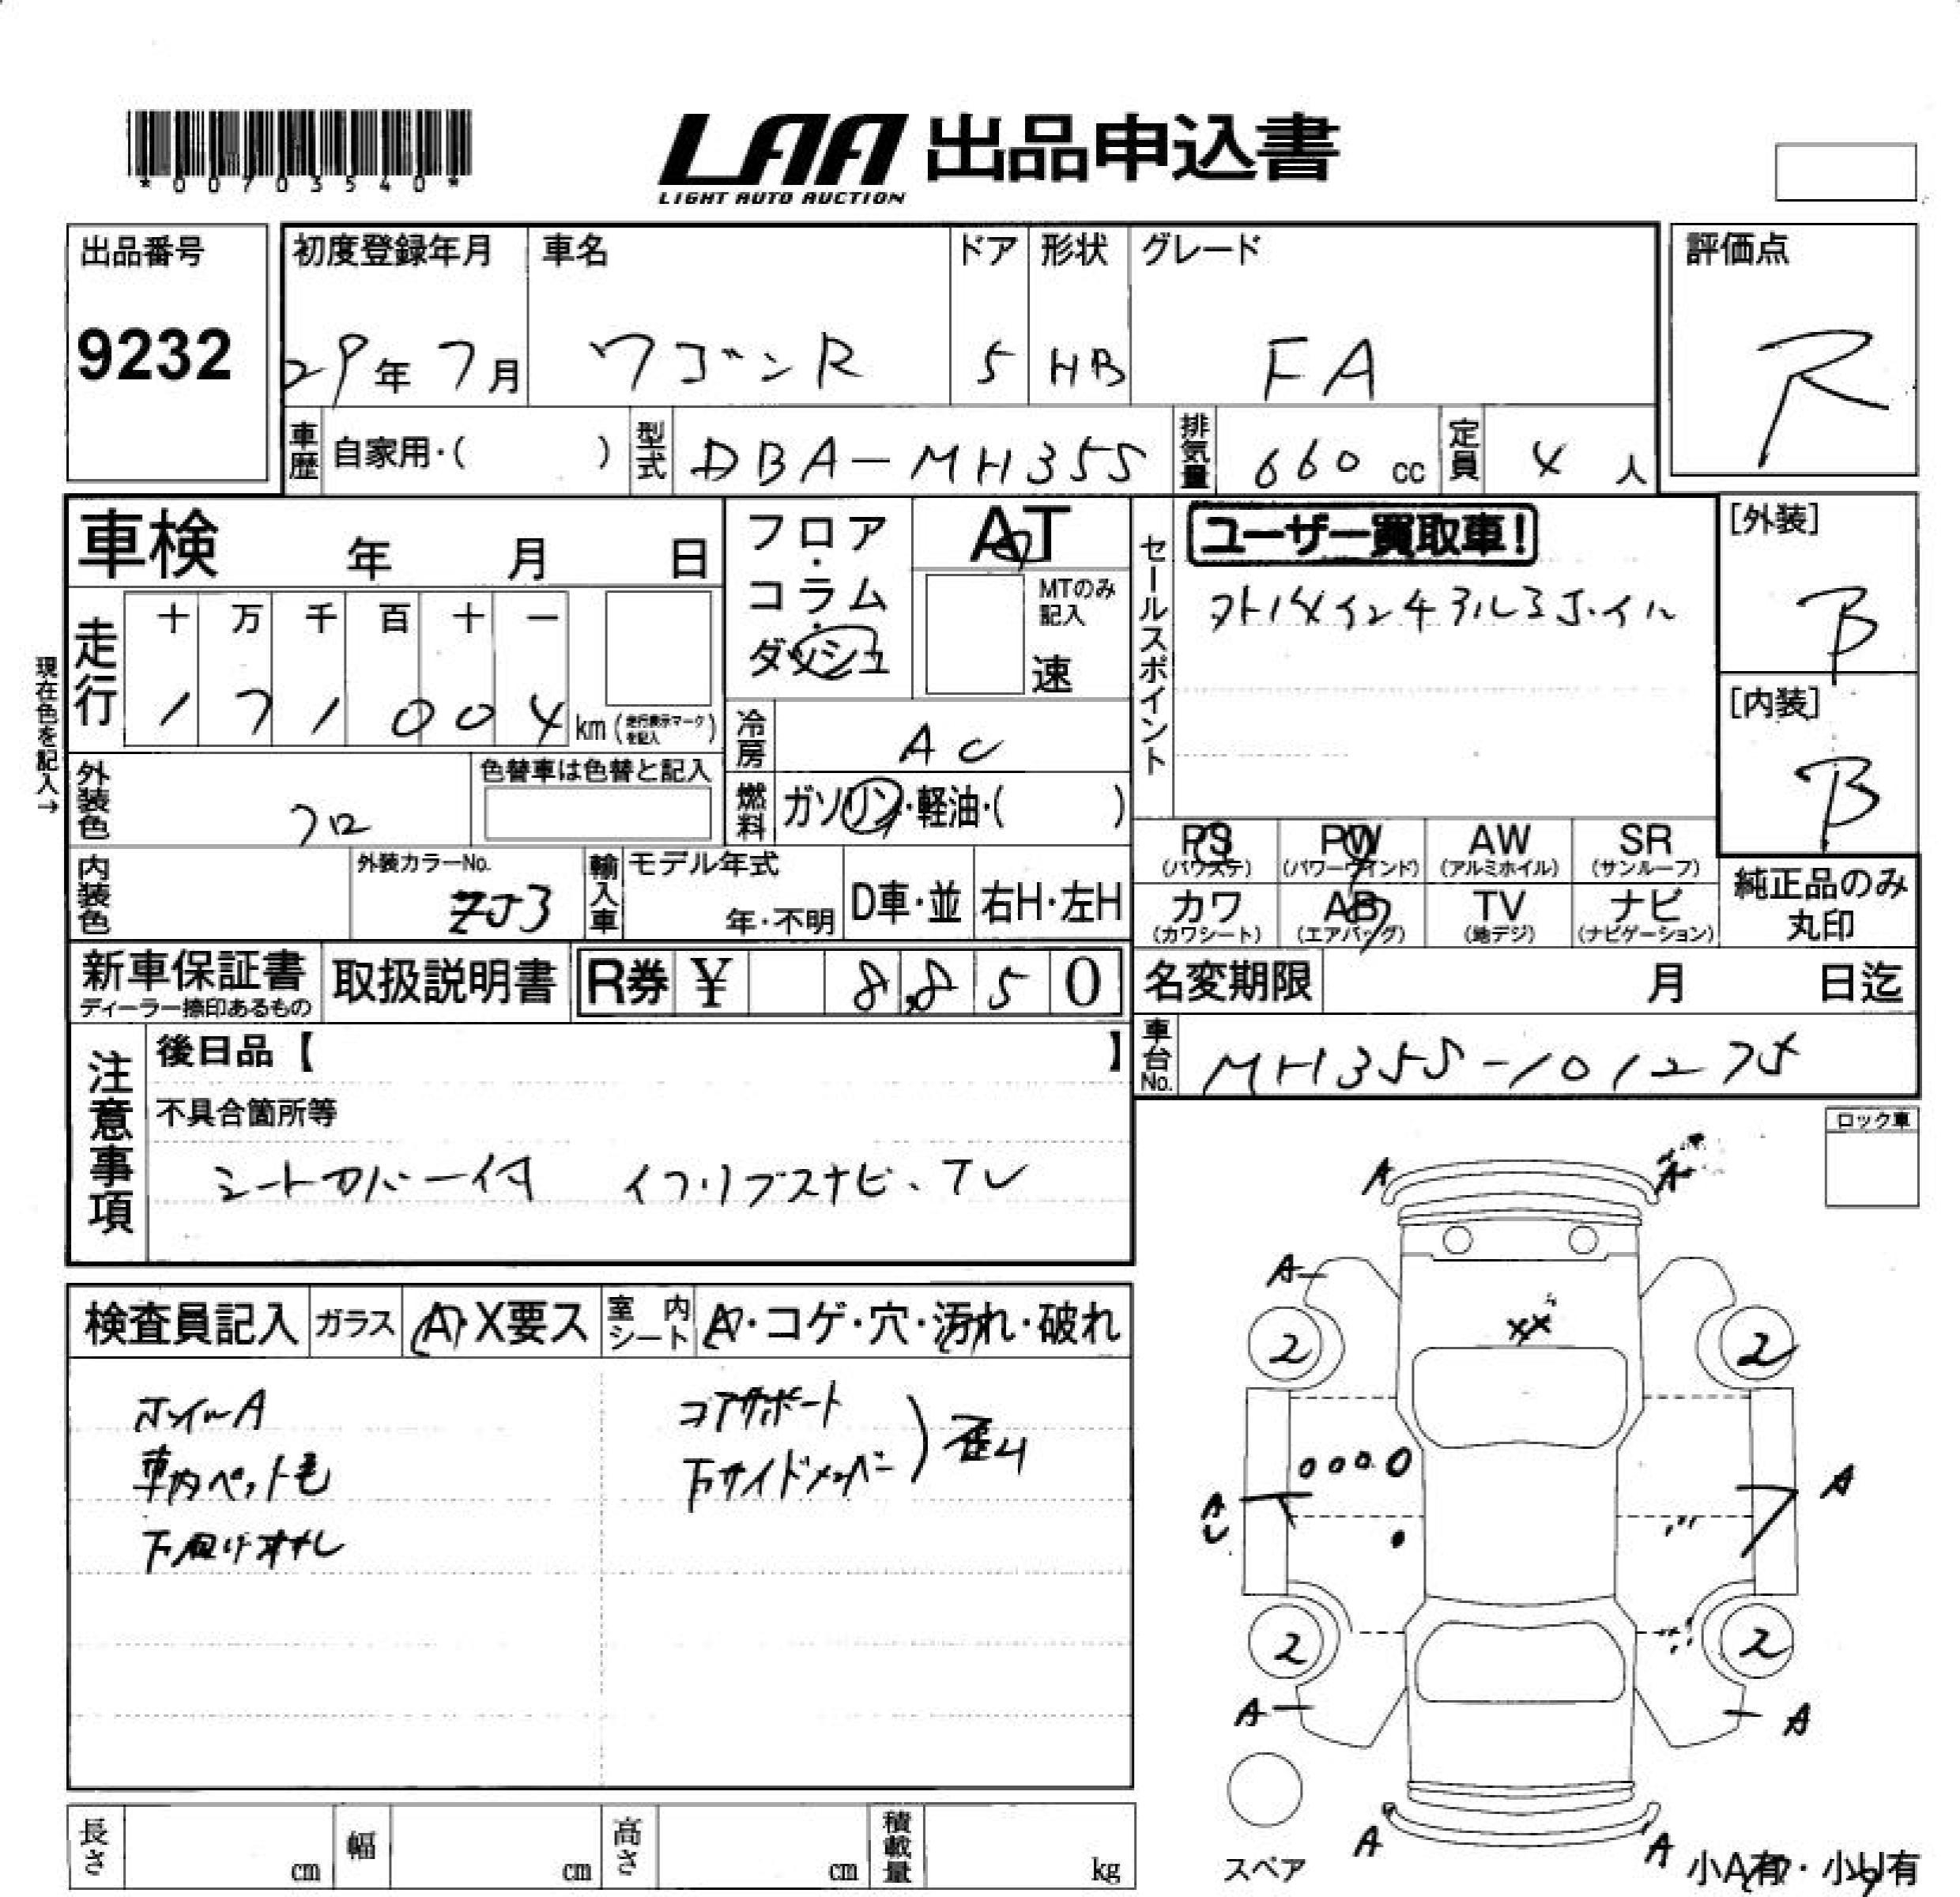 *00703540*
LAA 出品申込書
LIGHT AUTO AUCTION
出品番号
9232
初度登録年月
29年 7月
車名
ワゴンR
ドア
5
形状
HB
グレード
FA
評価点
R
車歴
自家用・( )
型式
DBA-MH35S
排気量
660 cc
定員
4 人
車検 年 月 日
フロア・コラム・ダッシュ
AT
MTのみ記入
速
セールスポイント
ユーザー買取車!
14インチアルミホイル
[外装]
B
[内装]
B
現在色を記入→
走行
十 万 千 百 十 一
1 7 1 0 0 4 km (走行表示マークを記入)
冷房
AC
外装色
クロ
色替車は色替と記入
燃料
ガソリン・軽油・( )
内装色
外装カラーNo.
ZJ3
輸入車
モデル年式
年・不明
D車・並
右H・左H
PS
(パワステ)
PW
(パワーウインド)
AW
(アルミホイル)
SR
(サンルーフ)
カワ
(カワシート)
AB
(エアバッグ)
TV
(地デジ)
ナビ
(ナビゲーション)
純正品のみ
丸印
新車保証書
ディーラー捺印あるもの
取扱説明書
R券 ¥ 8,850
名変期限 月 日迄
車台No.
MH35S-101275
注意事項
後日品【 】
不具合箇所等
シートカバー付 イクリプスナビ、TV
ロック車
検査員記入
ガラス
A・X要ス
室内シート
A・コゲ・穴・汚れ・破れ
ホイルA
車内ペット毛
コアサポート
下サイドメンバー
歪み
A
A
A
XX
2
2
A
A
U
2
2
A
A
A
A
スペア
小A有・小U有
長さ cm
幅 cm
高さ cm
積載量 kg